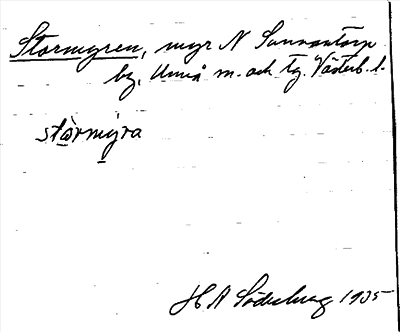 Stormyren, myr N Sunnantorp
by, Umeå m. och tg. Västerb. l.
stormyra
H A Söderberg 1935